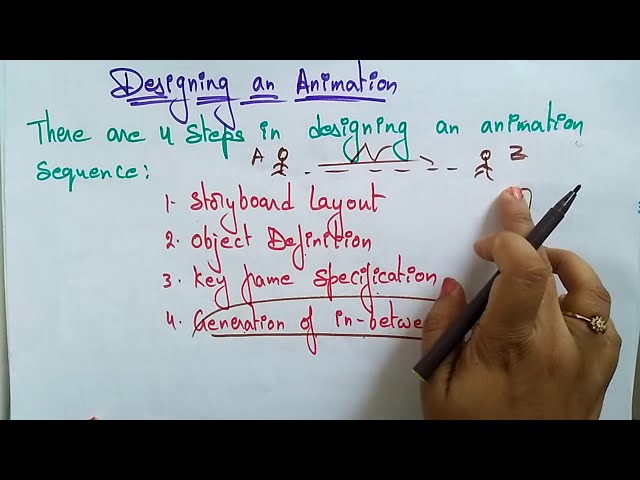 Designing an Animation
There are 4 steps in designing an animation
sequence:
A
1. Storyboard Layout
2. Object Definition
3. Key frame Specification
4. Generation of in-betwe